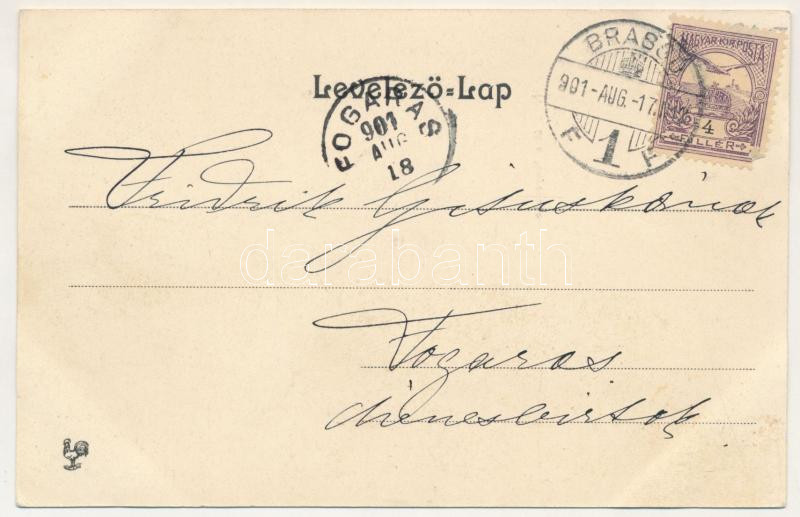 BRASSÓ
901-AUG.-17.
F 1 F
MAGYAR·KIR·POSTA
4
FILLÉR
Levelező=Lap
FOGARAS
901
AUG
18
Fridrik Gizuskának
darabanth
Fogaras
ménesbirtok